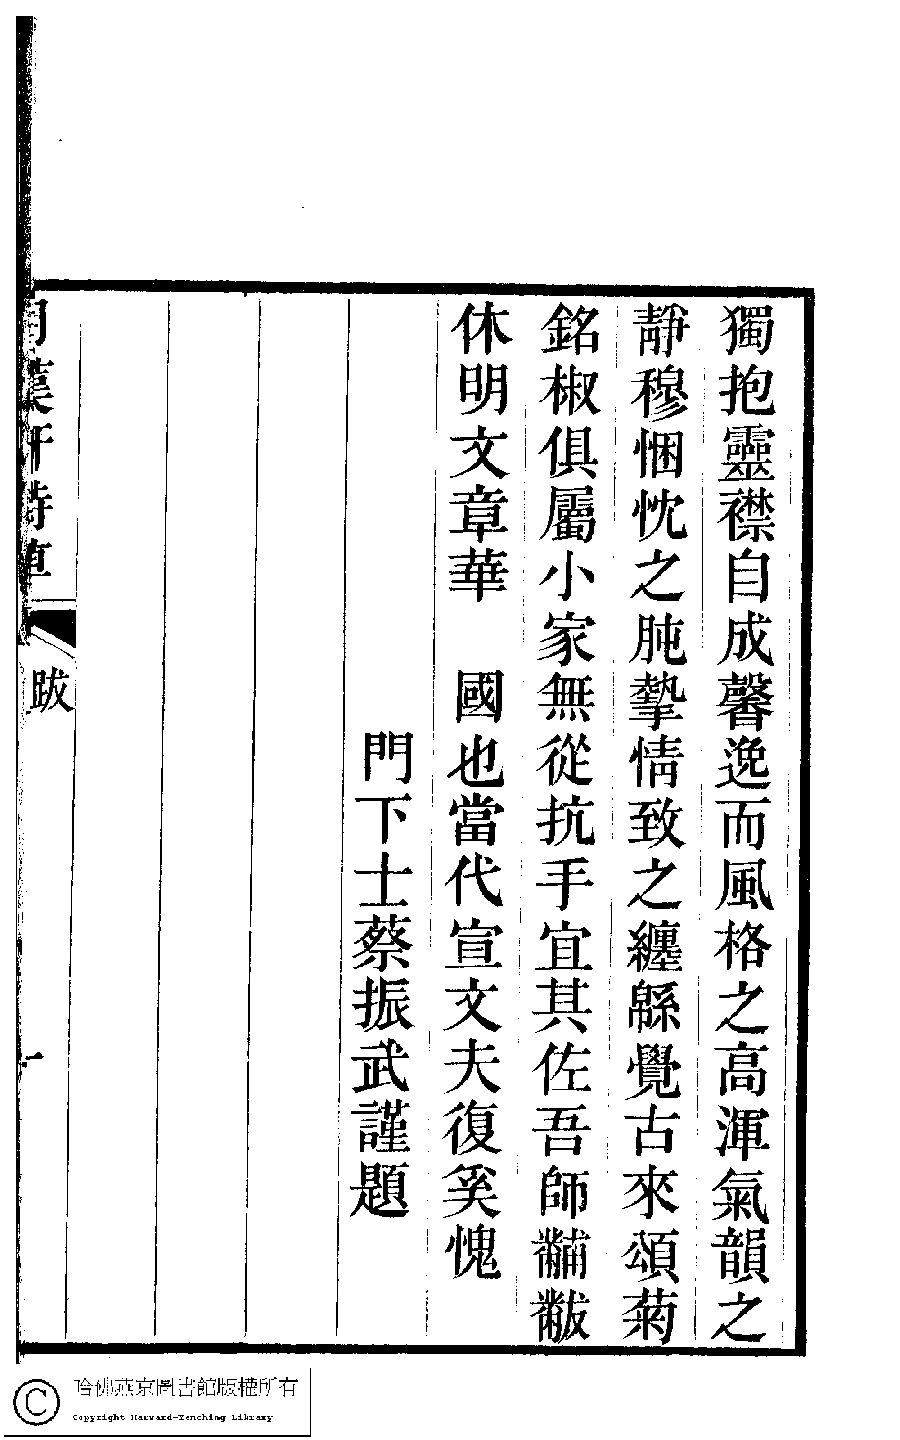 獨抱靈襟自成馨逸而風格之高渾氣韻之
靜穆悃忱之肫摯情致之纏緜覺古來頌菊
銘椒俱屬小家無從抗手宜其佐吾師黼黻
休明文章華　國也當代宣文夫復奚愧
門下士蔡振武謹題
跋
一
哈佛燕京圖書館版權所有
Copyright Harvard-Yenching Library